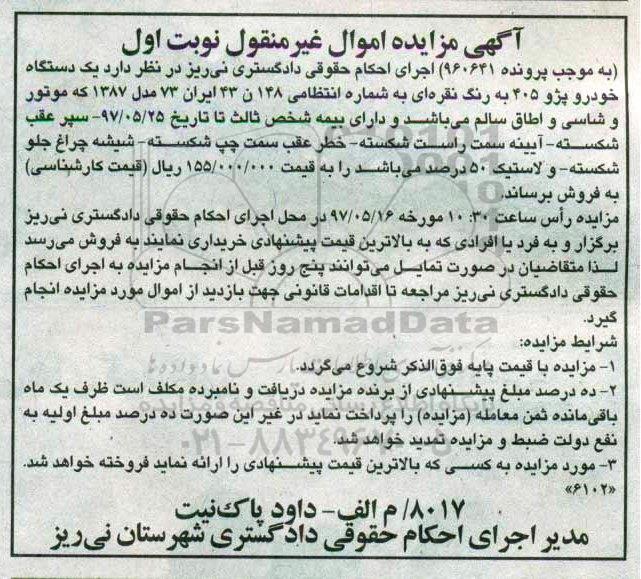 آگهی مزایده اموال غیرمنقول نوبت اول
(به موجب پرونده ۹۶۰۶۴۱) اجرای احکام حقوقی دادگستری نی‌ریز در نظر دارد یک دستگاه
خودرو پژو ۴۰۵ به رنگ نقره‌ای به شماره انتظامی ۱۴۸ ن ۴۳ ایران ۷۳ مدل ۱۳۸۷ که موتور
و شاسی و اطاق سالم می‌باشد و دارای بیمه شخص ثالث تا تاریخ ۹۷/۰۵/۲۵- سپر عقب
شکسته- آیینه سمت راست شکسته- خطر عقب سمت چپ شکسته- شیشه چراغ جلو
شکسته- و لاستیک ۵۰ درصد می‌باشد را به قیمت ۱۵۵/۰۰۰/۰۰۰ ریال (قیمت کارشناسی)
به فروش برساند.
مزایده رأس ساعت ۱۰:۳۰ مورخه ۹۷/۰۵/۱۶ در محل اجرای احکام حقوقی دادگستری نی‌ریز
برگزار و به فرد یا افرادی که به بالاترین قیمت پیشنهادی خریداری نمایند به فروش می‌رسد
لذا متقاضیان در صورت تمایل می‌توانند پنج روز قبل از انجام مزایده به اجرای احکام
حقوقی دادگستری نی‌ریز مراجعه تا اقدامات قانونی جهت بازدید از اموال مورد مزایده انجام
گیرد.
شرایط مزایده:
۱- مزایده با قیمت پایه فوق‌الذکر شروع می‌گردد.
۲- ده درصد مبلغ پیشنهادی از برنده مزایده دریافت و نامبرده مکلف است ظرف یک ماه
باقی‌مانده ثمن معامله (مزایده) را پرداخت نماید در غیر این صورت ده درصد مبلغ اولیه به
نفع دولت ضبط و مزایده تمدید خواهد شد.
۳- مورد مزایده به کسی که بالاترین قیمت پیشنهادی را ارائه نماید فروخته خواهد شد.
«۶۱۰۲»
۸۰۱۷/ م الف- داود پاک‌نیت
مدیر اجرای احکام حقوقی دادگستری شهرستان نی‌ریز
ParsNamadData
۰۲۱-۸۸۳۴۹۶۷۰